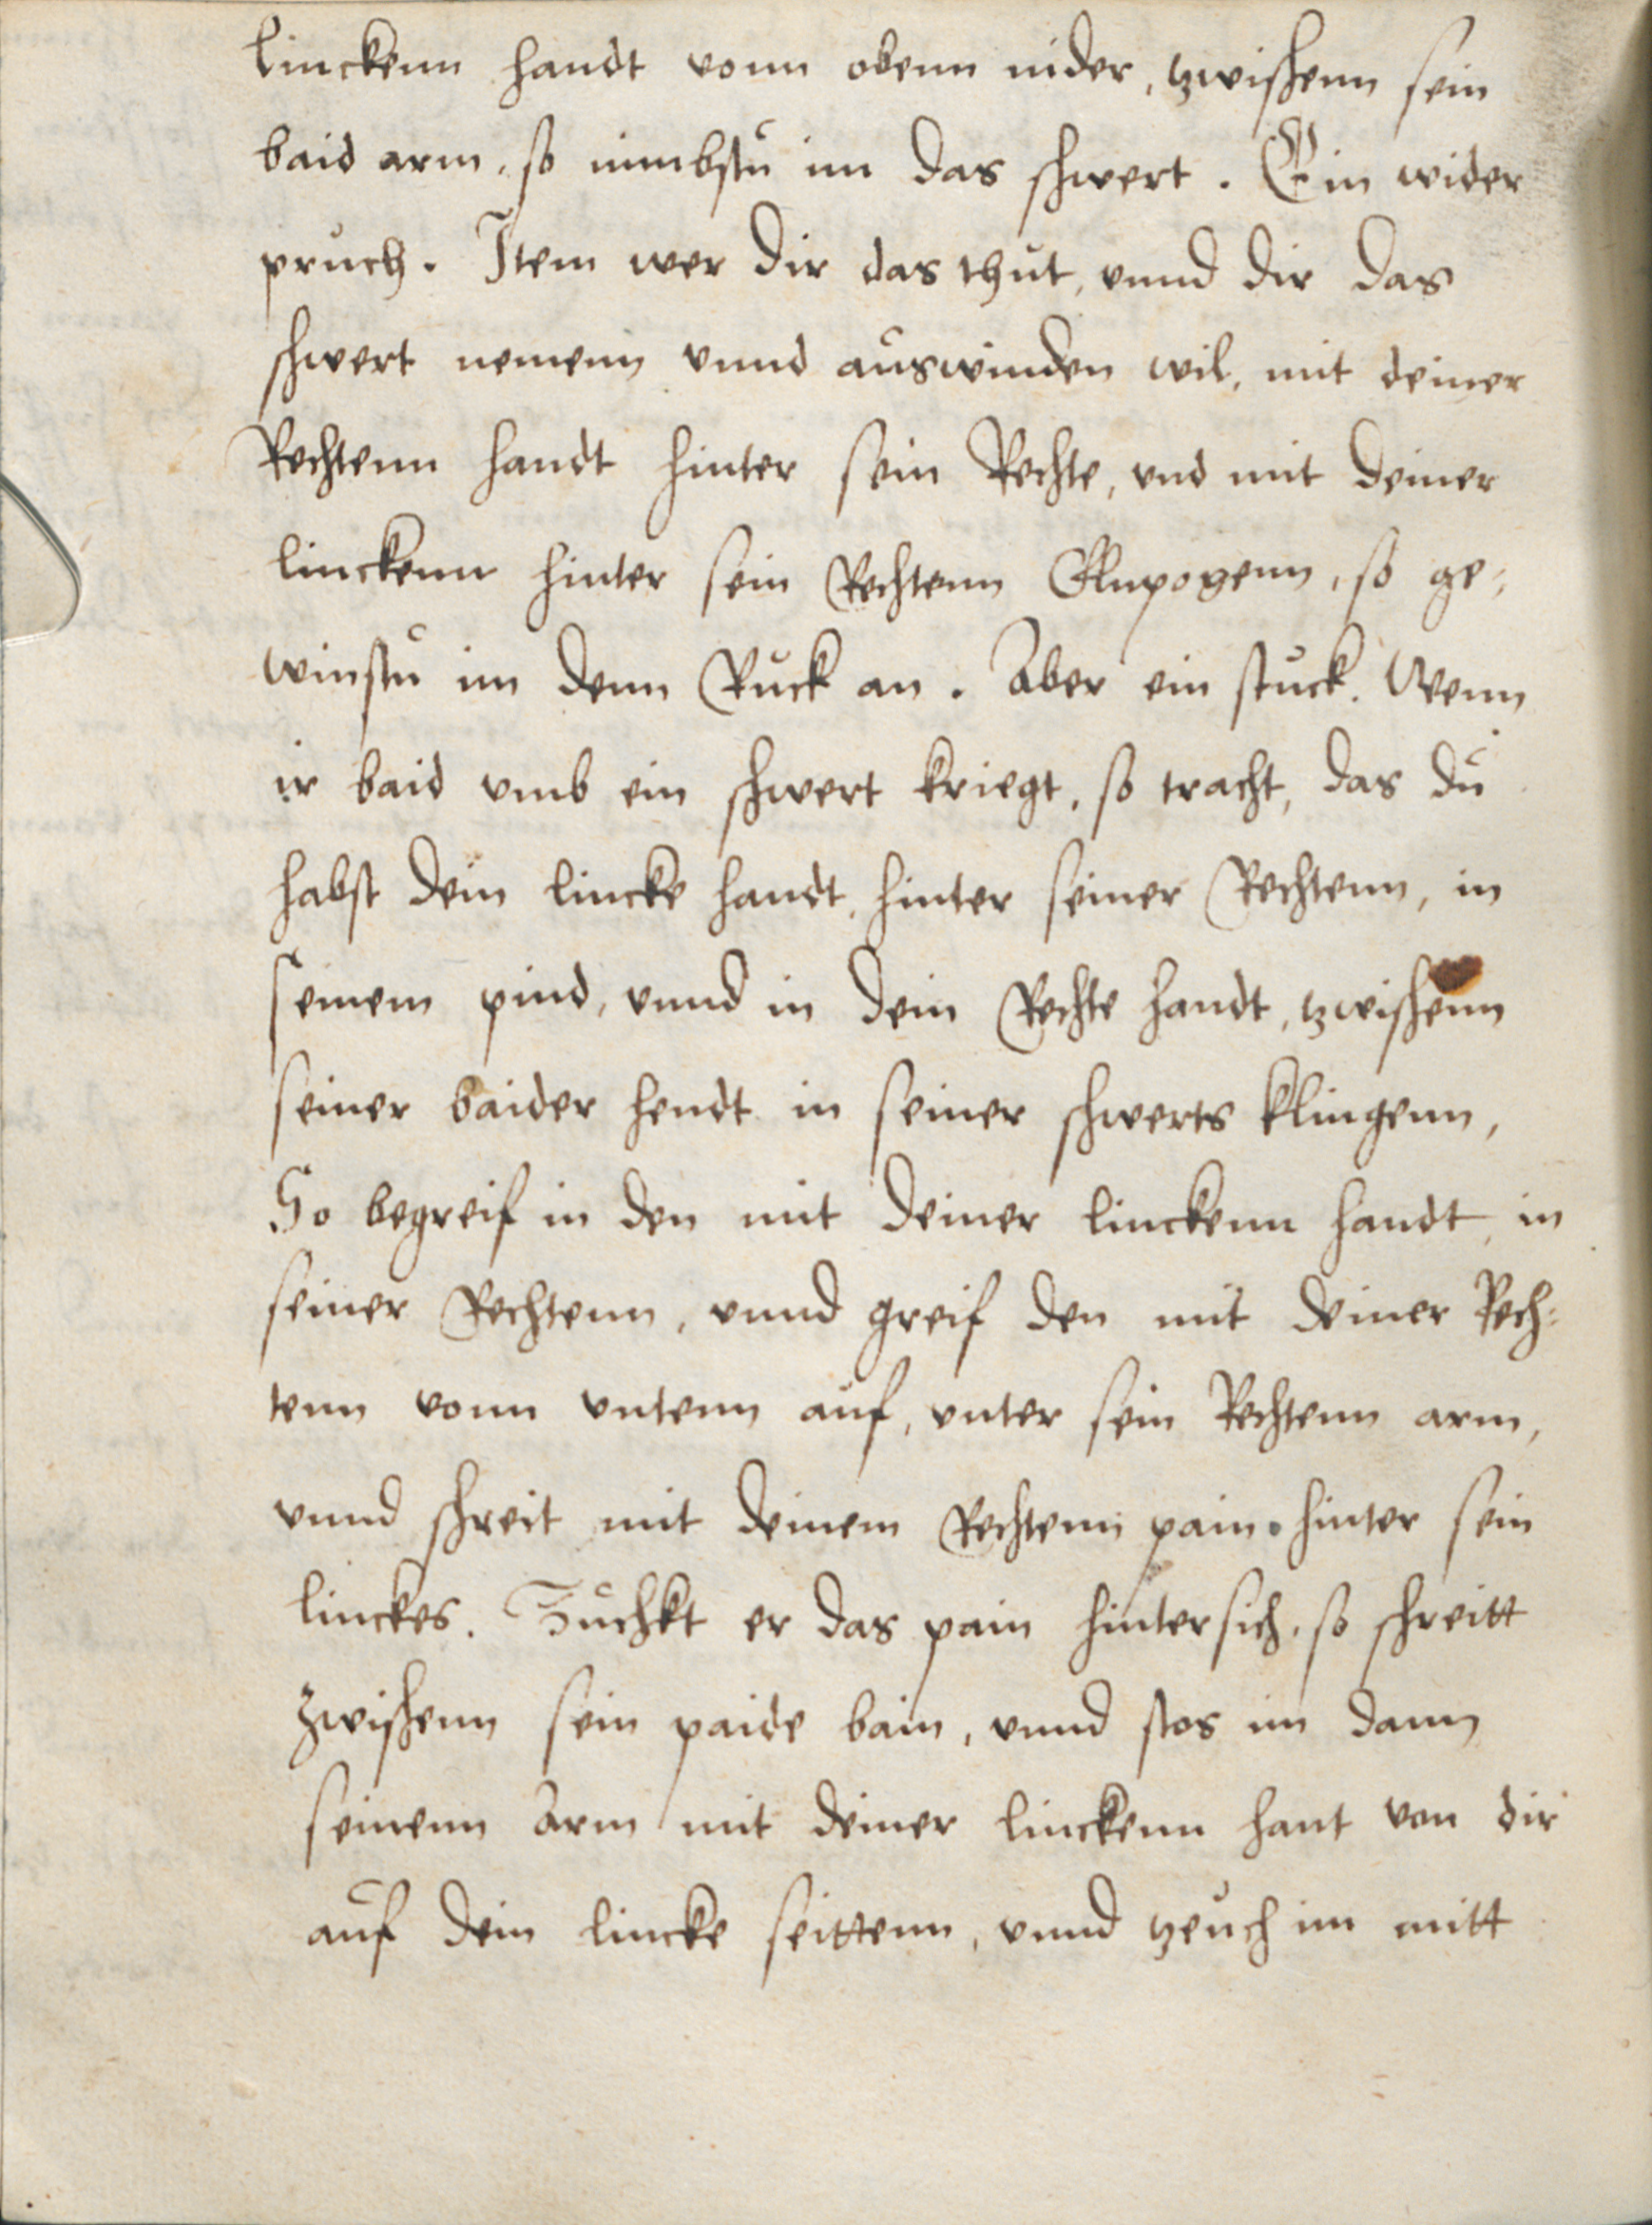 linckenn handt vonn obenn nider, tzwischenn sein
baid arm, so nimbstu im das schwert. Ein wider
pruch. Item wer dir das thut, vnnd dir das
schwert nemenn vnnd auswinden wil, mit deiner
Rechtenn handt hinter sein Rechte, vnd mit deiner
linckenn hinter sein Rechtenn Elnpogenn, so ge-
winstu im denn Ruck an. Aber ein stuck. Wenn
ir baid vmb ein schwert kriegt, so tracht, das du
habst dein lincke handt, hinter seiner Rechtenn, in
seinem pind, vnnd in dein Rechte handt, tzwischenn
seiner baider hendt in seiner schwerts klingenn,
So begreif in den mit deiner linckenn handt, in
seiner Rechtenn, vnnd greif den mit deiner Rech-
tenn vonn vntenn auf, vnter sein Rechtenn arm,
vnnd schreit mit deinem Rechtenn pain hinter sein
linckes. Zuchkt er das pain hintersich, so schreitt
zwischenn sein paide bain, vnnd stos im dann
seinenn arm mit deiner linckenn hant von dir
auf dein lincke seittenn, vnnd tzeuch im mitt